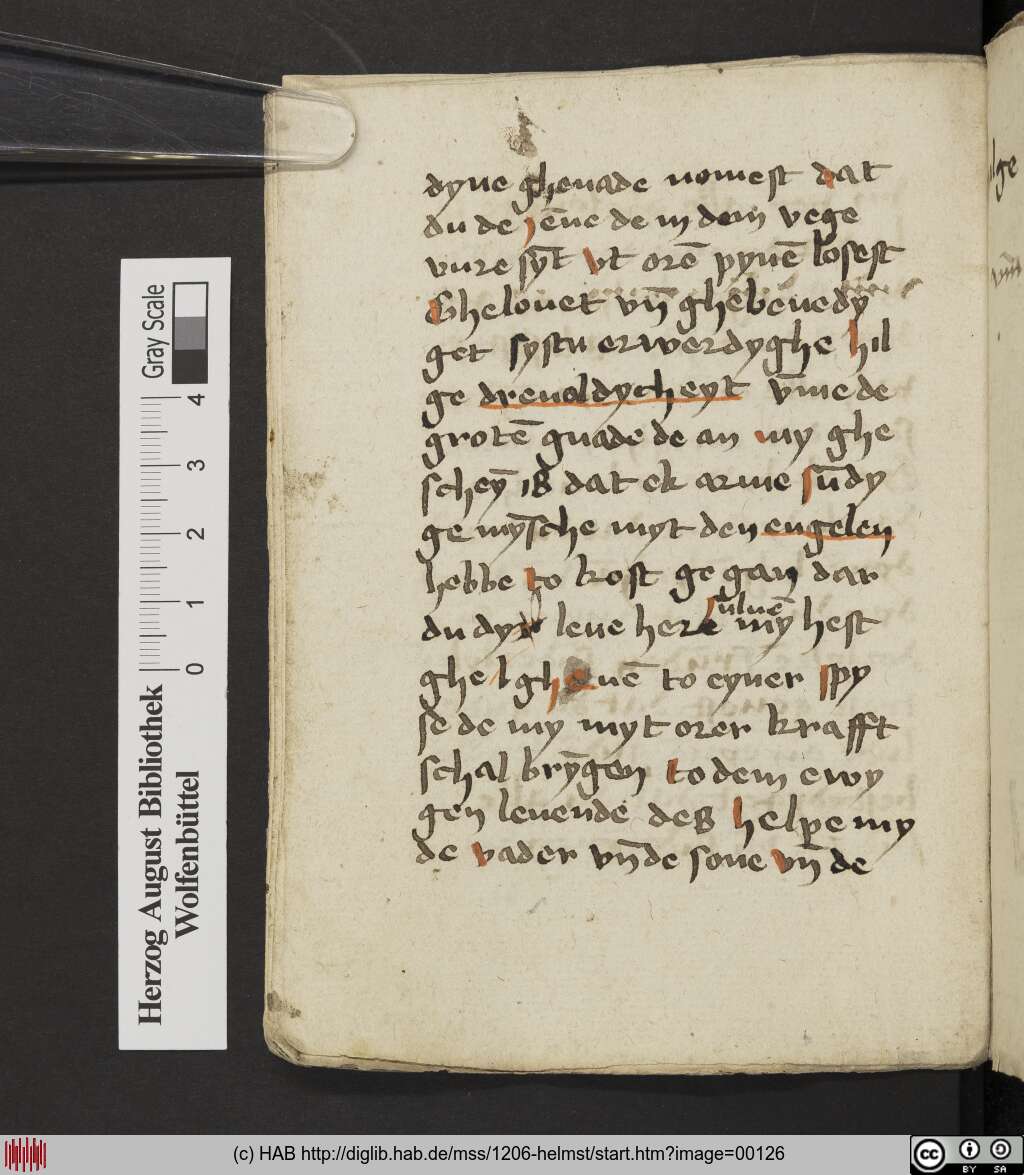 dyne ghenade nomest dat
du de jēne de in dem vege
vure syt vt orē pynē losest
Ghelouet vn̄ ghebenedy
get systu erwerdyghe hil
ge dreualdycheyt vm̄e de
grotē gnade de an my ghe
scheȳ iß dat ek arme sūdy
ge mȳsche myt den engelen
hebbe to kost ge gan dar
du dy leue here suluē my hest
ghe l gheuē to eyner spy
se de my myt orer krafft
schal brȳgen to dem ewy
gen leuende deß helpe my
de vader vn̄ de sone vn̄ de
Herzog August Bibliothek
Wolfenbüttel
Gray Scale
0 1 2 3 4
(c) HAB http://diglib.hab.de/mss/1206-helmst/start.htm?image=00126
cc BY SA